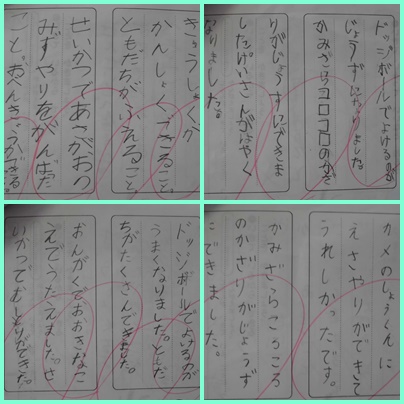 きゅうしょくが
かんしょくできること。
ともだちがふえること。
せいかつであさがおの
みずやりをがんばた
こと。
ドッジボールでよけるのが
じょうずになりました。
かみざらコロコロのかざ
りがじょうずにできま
した。けいさんがはやく
なりました。
ドッジボールでよけるのが
うまくなりました。ともだ
ちがたくさんできました。
おんがくでおおきなこ
えでうたえました。せ
いかつでむしとりができた。
カメのしょうくんに
えさやりができて
うれしかったです。
かみざらころころ
のかざりがじょうず
にできました。